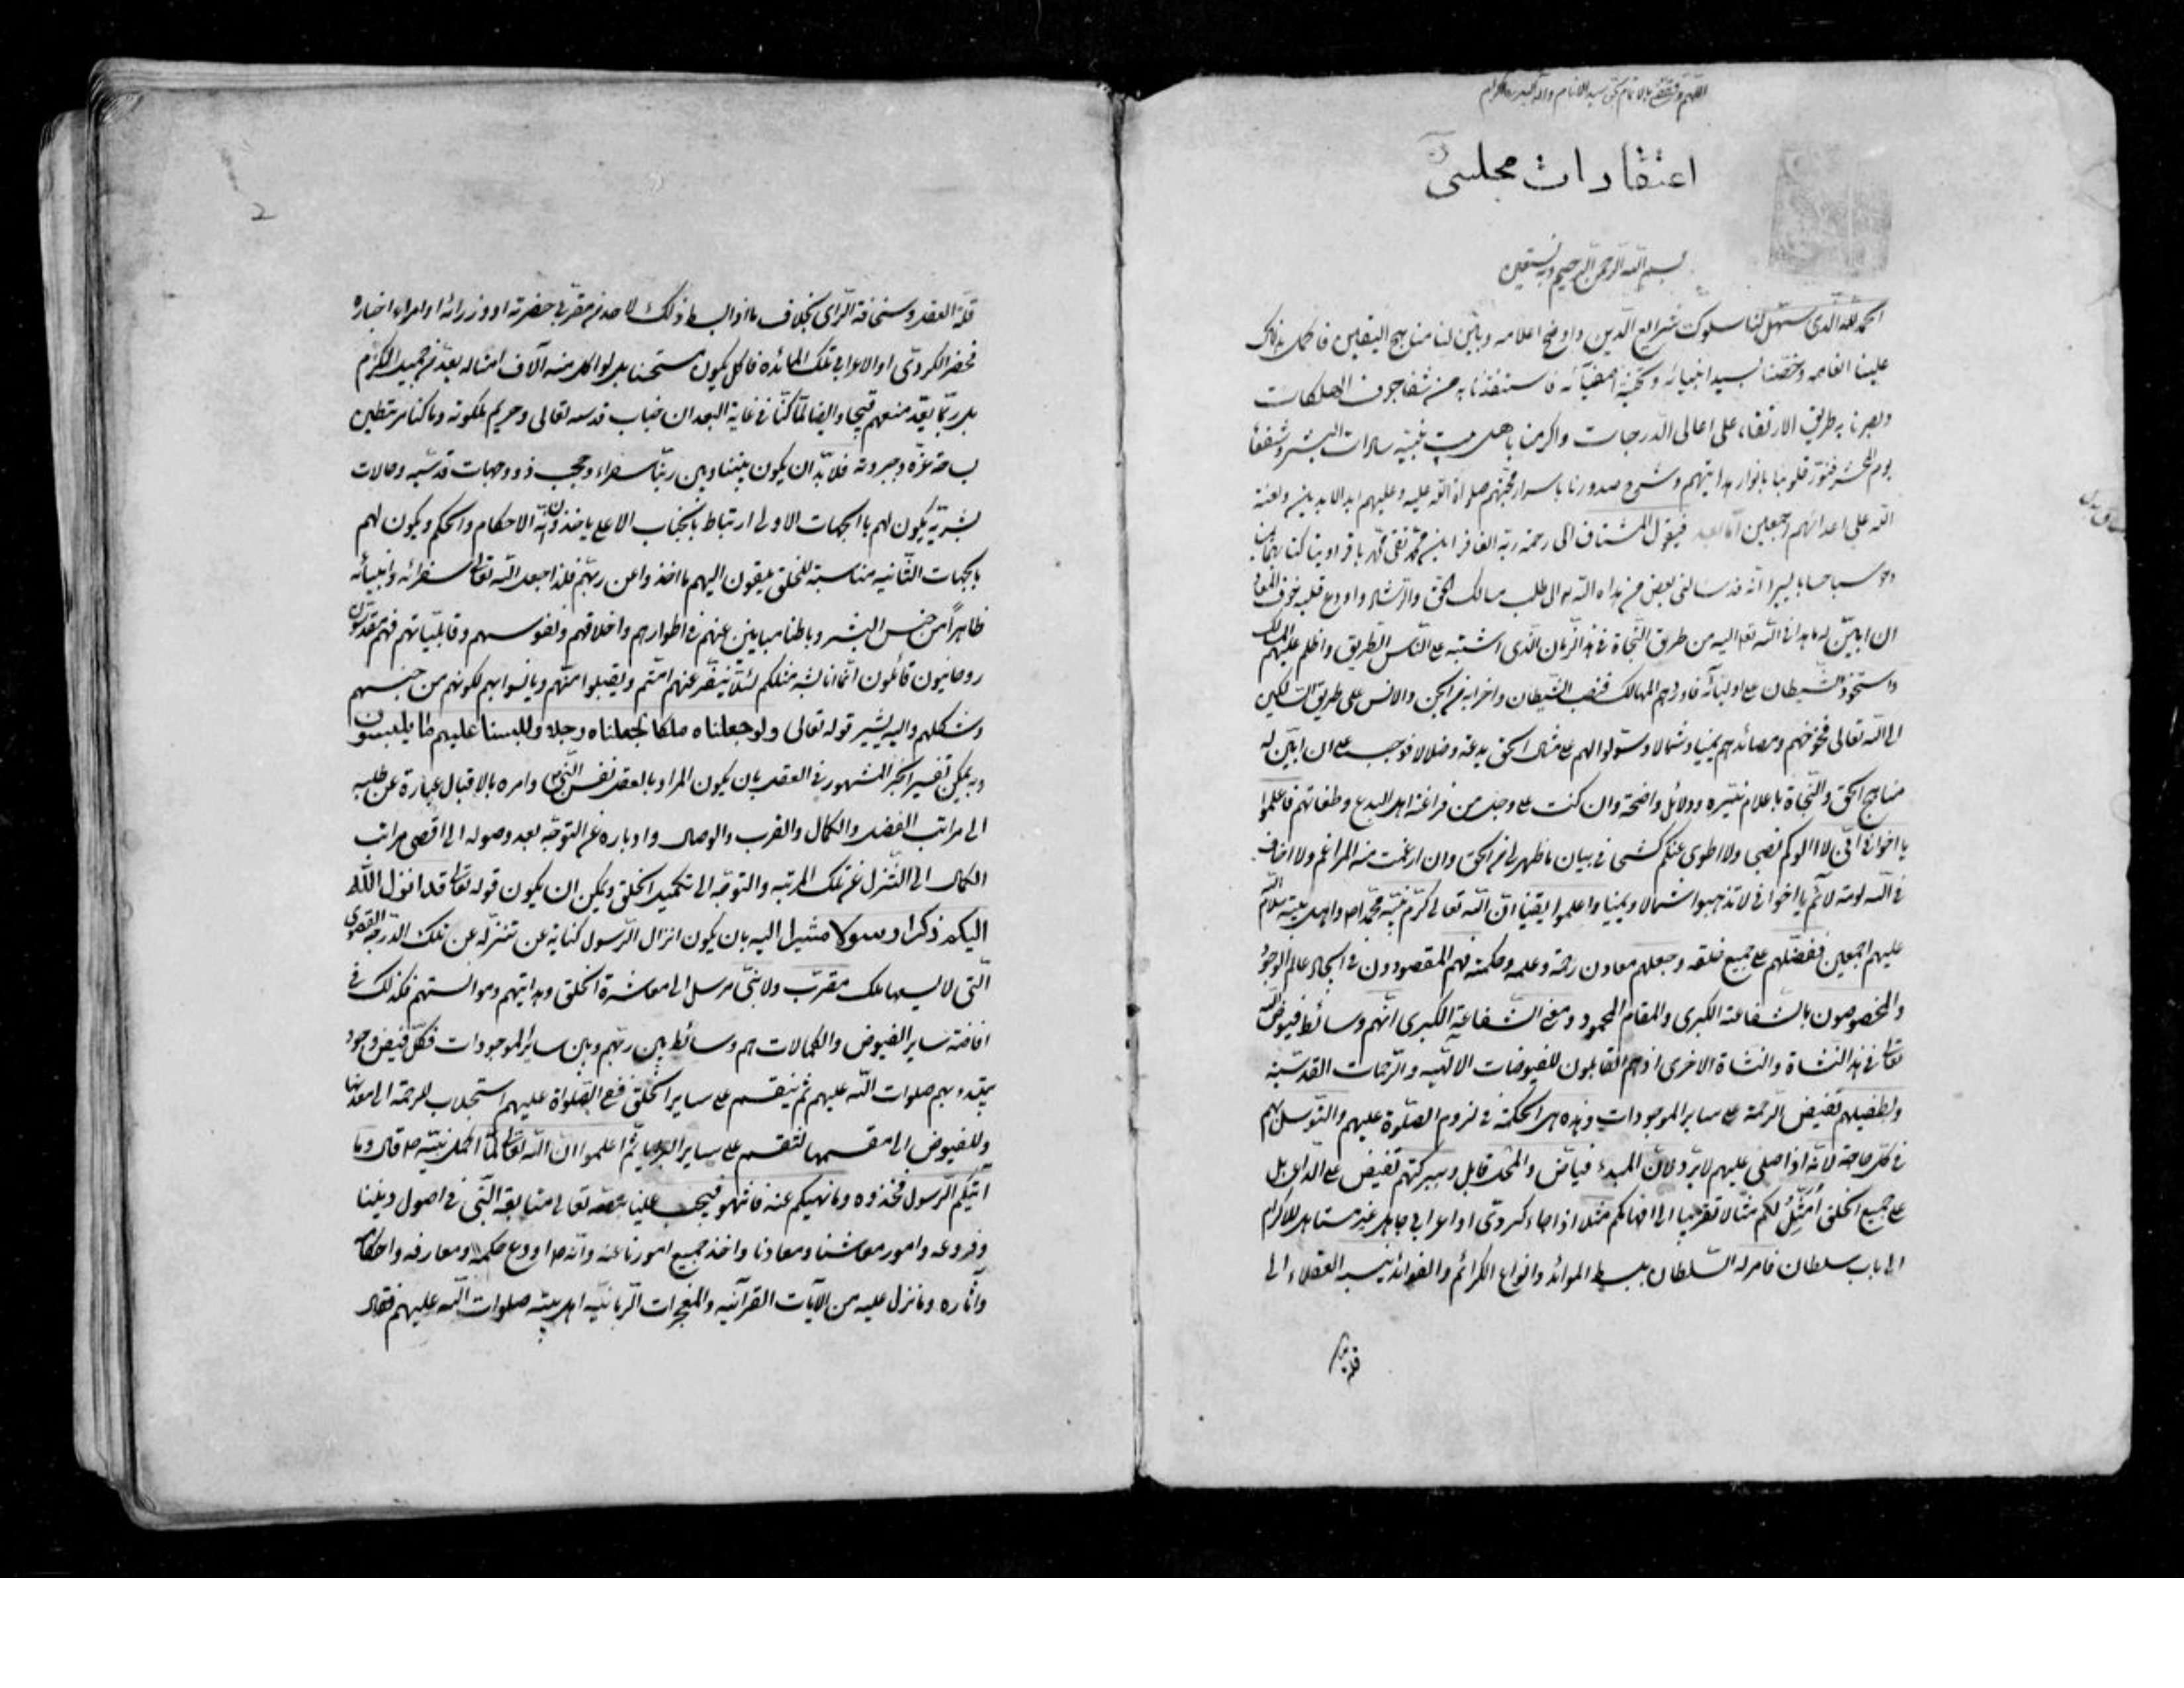 اعتقادات مجلسی
بسم الله الرحمن الرحیم وبه نستعین
الحمد لله الذی سهل لنا سلوک شرایع الدین واوضح اعلامه وبین لنا مناهج الیقین فاکمل بذلک
علینا انعامه وخصنا بسید انبیائه ونخبة اصفیائه فاستنقذنا به من شفا جرف الهلکات
وبصرنا به طریق الارتقاء علی اعالی الدرجات واکرمنا باهل بیت نبیه سادات البشر وشفعاء
یوم المحشر فنور قلوبنا بانوار هدایتهم وشرح صدورنا باسرار محبتهم صلوات الله علیه وعلیهم ابد الابدین ولعنة
الله علی اعدائهم اجمعین اما بعد فیقول المشتاق الی رحمة ربه الغافر ابن محمد تقی محمد باقر اوتیا کتابهما یمینا
وحوسبا حسابا یسیرا انه قد سالنی بعض من هداه الله الی طلب مسالک الحق والرشاد واودع قلبه خوف المعاد
ان ابین له ما هدانی الله تعالی الیه من طریق النجاة فی هذا الزمان الذی اشتبه علی الناس الطریق واظلم علیهم المسالک
واستحوذ الشیطان علی اولیائه فاوردهم المهالک فنصب الشیطان واحزابه من الجن والانس علی طریق السالکین
الی الله تعالی فخوخهم ومصائدهم یمینا وشمالا وسولوا لهم علی مثال الحق بدعة وضلالا فوجب علی ان ابین له
مناهج الحق والنجاة باعلام نیره ودلائل واضحة وان کنت علی وجل من فراعنة اهل البدع وطغاتهم فاعلموا
یا اخوانی انی لا الوکم نصحی ولا اطوی عنکم کشحی فی بیان ما ظهر لی من الحق وان ارغمت منه المراغم ولا اخاف
فی الله لومة لائم یا اخوانی لا تذهبوا شمالا ویمینا واعلموا یقینا ان الله تعالی کرم نبیه محمدا ص واهل بیته سلام الله
علیهم اجمعین ففضلهم علی جمیع خلقه وجعلهم معادن رحمته وعلمه وحکمته فهم المقصودون فی ایجاد عالم الوجود
والمخصوصون بالشفاعة الکبری والمقام المحمود ومعنی الشفاعة الکبری انهم وسائط فیوض الله
تعالی فی هذا النشاة والنشاة الاخری اذ هم القابلون للفیوضات الالهیه والرحمات القدسیه
وبطفیلهم تفیض الرحمة علی سایر الموجودات وهذه هی الحکمة فی لزوم الصلوة علیهم والتوسل بهم
فی کل حاجة لانه اذا صلی علیهم لا یرد لان المبدء فیاض والمحل قابل وببرکتهم تفیض علی الداعی بل
علی جمیع الخلق امثل لکم مثالا تقریبا الی افهامکم مثلا اذا جاء کردی او اعرابی جاهل غیر مستاهل للاکرام
الی باب سلطان فامر له السلطان ببسط الموائد وانواع الکرائم والفوائد ینسبه العقلاء الی
قلة
2
قلة العقل وسخافة الرای بخلاف ما اذا بسط ذلک لاحد من مقربی حضرته او وزرائه او امراء اجناده
فحضر الکردی او الاعرابی تلک المائده فاکل یکون مستحسنا بل لو اکل منه آلاف امثاله یعد من جمیل الکرم
بل ربما یعد منعهم قبیحا وایضا لما کنا فی غایة البعد ان جناب قدسه تعالی وحریم ملکوته وما کنا مرتبطین
بساحة عزه وجبروته فلا بد ان یکون بیننا وبین ربنا سفراء وحجب ذوو جهات قدسیه وحالات
بشریه یکون لهم بالجهات الاولی ارتباط بالجناب الاعلی یاخذون منه الاحکام والحکم ویکون لهم
بالجهات الثانیه مناسبة للخلق یلقون الیهم ما اخذوا عن ربهم فلذا جعل الله تعالی سفرائه وانبیائه
ظاهرا من جنس البشر وباطنا مباینین عنهم فی اطوارهم واخلاقهم ونفوسهم وقابلیاتهم فهم مقدسون
روحانیون قائلون انما انا بشر مثلکم لئلا ینفر عنهم امتهم ویقبلوا منهم ویانسوا بهم لکونهم من جنسهم
وشکلهم والیه یشیر قوله تعالی ولو جعلناه ملکا لجعلناه رجلا وللبسنا علیهم ما یلبسون
وبه یمکن تفسیر الخبر المشهور فی العقل بان یکون المراد بالعقل نفس النبی ص وامره بالاقبال عبارة عن طلبه
الی مراتب الفضل والکمال والقرب والوصال وادباره عن التوجه بعد وصوله الی اقصی مراتب
الکمال الی التنزل عن تلک المرتبه والتوجه الی تکمیل الخلق ویمکن ان یکون قوله تعالی قد انزل الله
الیکم ذکرا رسولا مشیرا الیه بان یکون انزال الرسول کنایة عن تنزله عن تلک الدرجة القصوی
التی لا یسعها ملک مقرب ولا نبی مرسل الی معاشرة الخلق وهدایتهم وموانستهم فکذلک فی
افاضة سایر الفیوض والکمالات هم وسائط بین ربهم وبین سایر الموجودات فکل فیض وجود
یبتدء بهم صلوات الله علیهم ثم ینقسم علی سایر الخلق ففی الصلواة علیهم استجلاب للرحمة الی معدنها
وللفیوض الی مقسمها لتنقسم علی سایر البرایا ثم اعلموا ان الله تعالی لما اکمل نبیه ص قال وما
آتیکم الرسول فخذوه وما نهیکم عنه فانتهوا فیجب علینا بنصه تعالی متابعة النبی فی اصول دیننا
وفروعه وامور معاشنا ومعادنا واخذ جمیع امورنا عنه وانه ص اودع حکمه ومعارفه واحکامه
وآثاره وما نزل علیه من الآیات القرآنیه والمعجزات الربانیه اهل بیته صلوات الله علیهم فقال